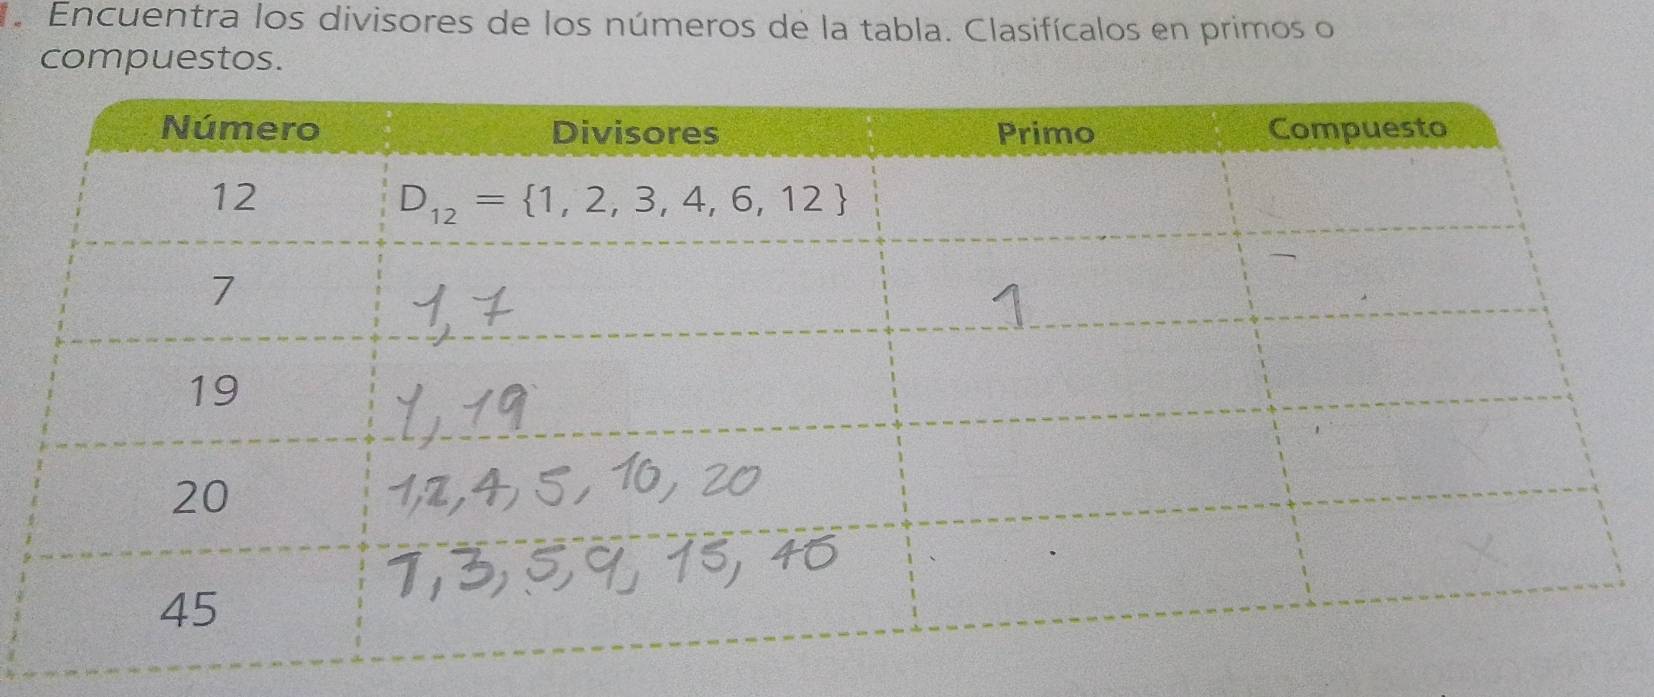 1. Encuentra los divisores de los números de la tabla. Clasifícalos en primos o
compuestos.
Número Divisores Primo Compuesto
12 D₁₂ = {1, 2, 3, 4, 6, 12 }
7 1, 7 1
19 1, 19
20 1, 2, 4, 5, 10, 20
45 1, 3, 5, 9, 15, 45